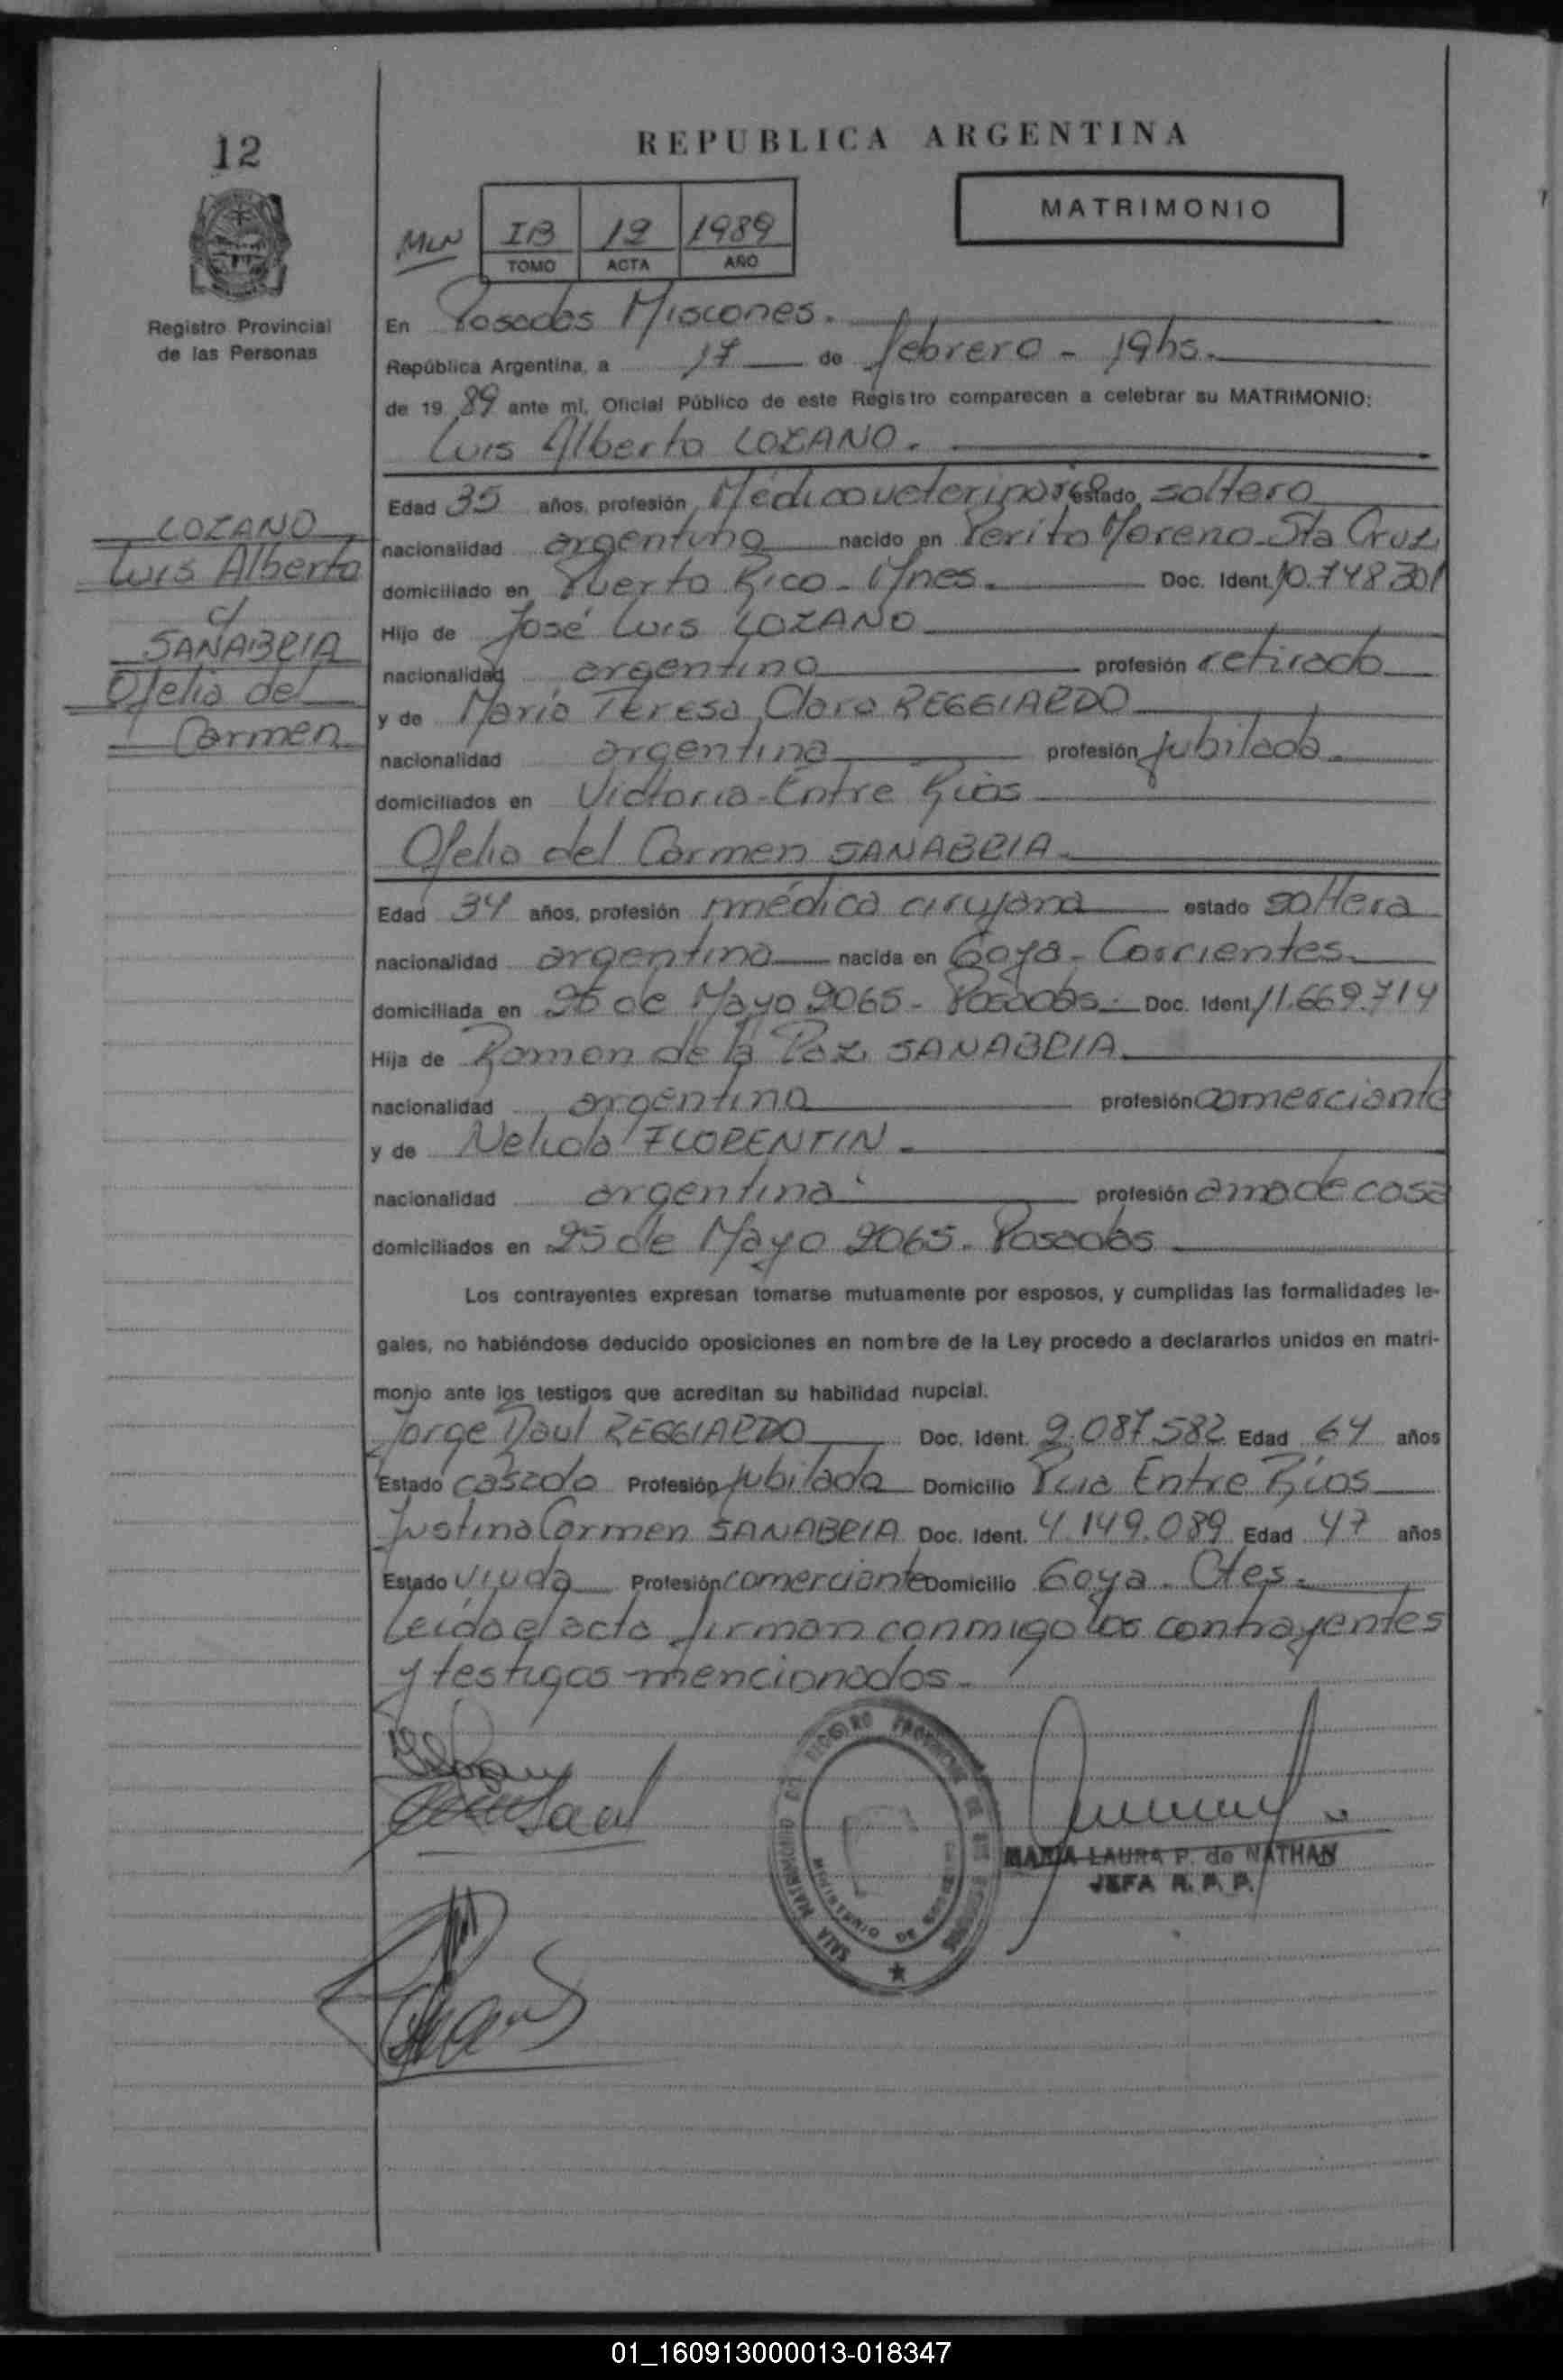 12
REPUBLICA ARGENTINA
MATRIMONIO
MLN
IB 12 1989
TOMO ACTA AÑO
Registro Provincial
de las Personas
En Posadas Misiones.
República Argentina, a 17 de febrero - 19hs.
de 19 89 ante mí, Oficial Público de este Registro comparecen a celebrar su MATRIMONIO:
Luis Alberto LOZANO.
LOZANO
Luis Alberto
c/
SANABRIA
Ofelia del
Carmen
Edad 35 años, profesión Médico veterinario estado soltero
nacionalidad argentino nacido en Perito Moreno - Sta Cruz
domiciliado en Puerto Rico - Mnes. Doc. Ident. 10.748.301
Hijo de José Luis LOZANO
nacionalidad argentino profesión retirado
y de María Teresa Clara REGGIARDO
nacionalidad argentina profesión jubilada.
domiciliados en Victoria - Entre Ríos
Ofelia del Carmen SANABRIA.
Edad 34 años, profesión médica cirujana estado soltera
nacionalidad argentina nacida en Goya - Corrientes.
domiciliada en 25 de Mayo 2065 - Posadas. Doc. Ident. 11.669.714
Hija de Ramon de la Paz SANABRIA.
nacionalidad argentino profesión comerciante
y de Nelida FLORENTIN.
nacionalidad argentina profesión ama de casa
domiciliados en 25 de Mayo 2065 - Posadas
Los contrayentes expresan tomarse mutuamente por esposos, y cumplidas las formalidades le-
gales, no habiéndose deducido oposiciones en nombre de la Ley procedo a declararlos unidos en matri-
monio ante los testigos que acreditan su habilidad nupcial.
Jorge Raul REGGIARDO Doc. Ident. 2.087.582 Edad 64 años
Estado casado Profesión jubilado Domicilio Pcia Entre Ríos
Justina Carmen SANABRIA Doc. Ident. 4.149.089 Edad 47 años
Estado viuda Profesión comerciante Domicilio Goya - Ctes.
Leida el acta firman conmigo los contrayentes
y testigos mencionados.
MARIA LAURA P. de NATHAN
JEFA R. P. P.
01_160913000013-018347